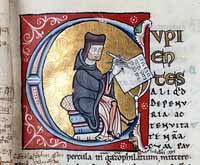 CUPI
EN
TES
ALIQID
DEPENU
RIA AC
TENUITA
TE NRA
CUM PAU
percula in gazophilatium mittere